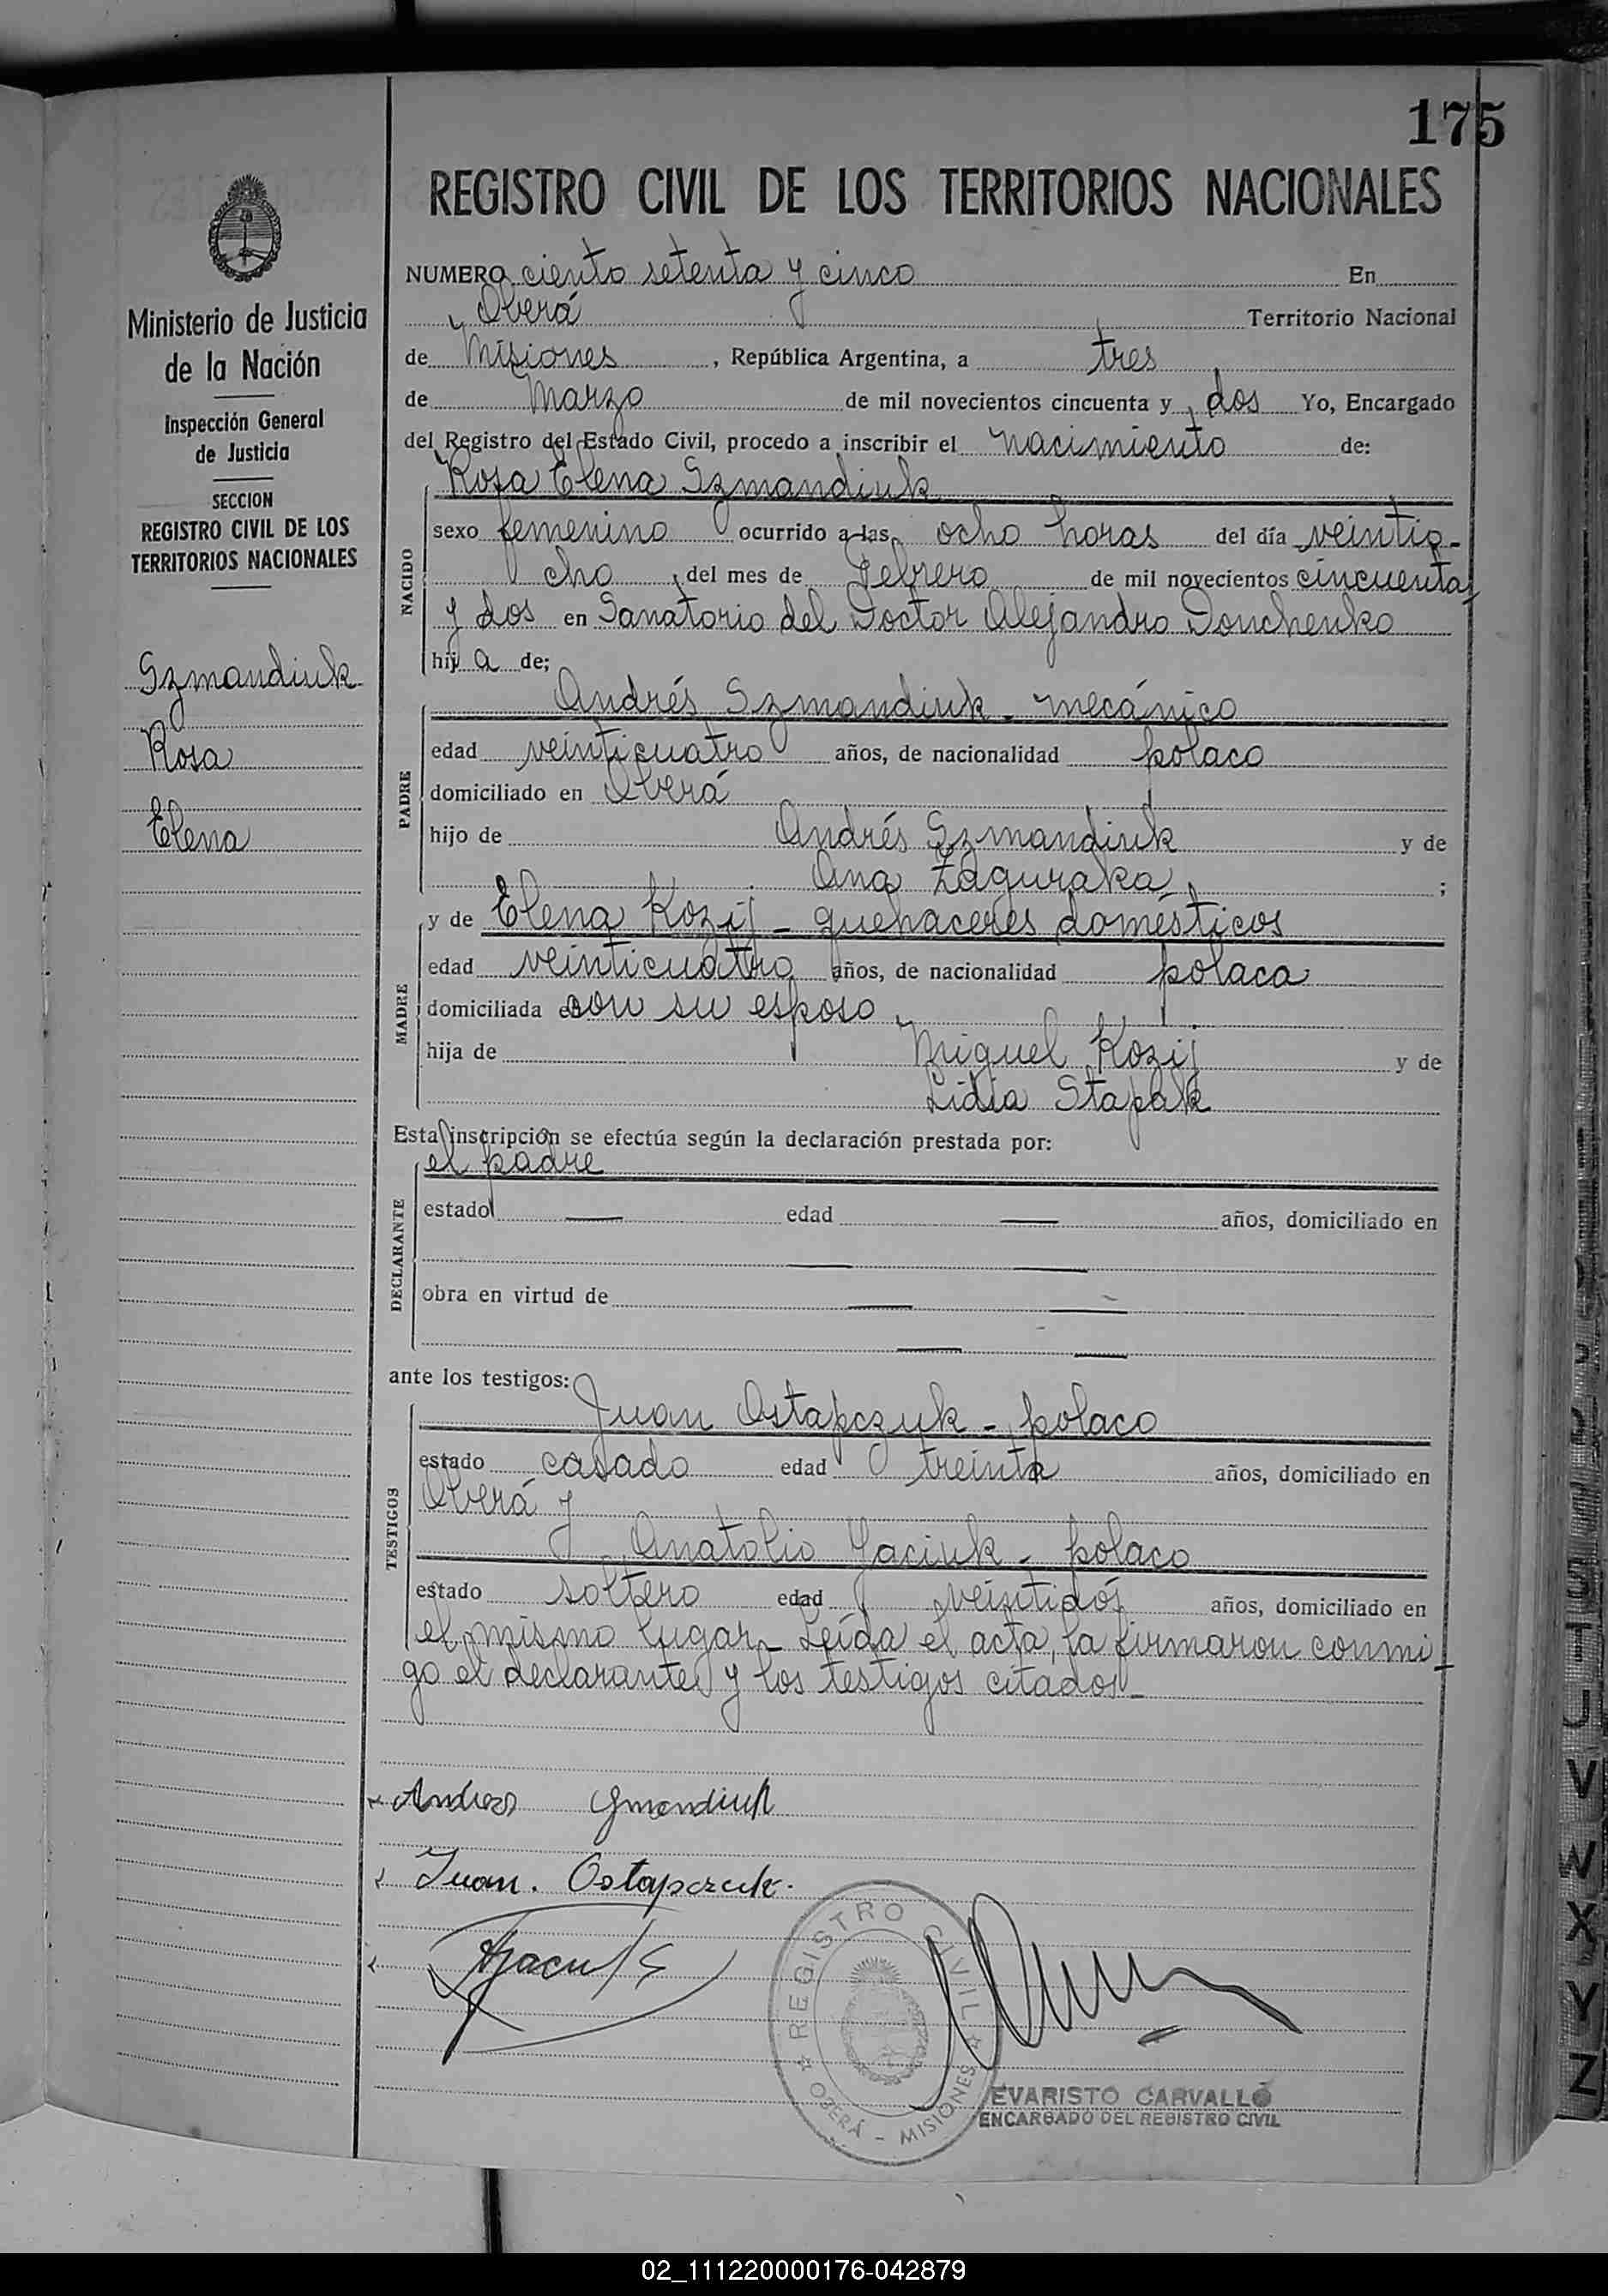 175
REGISTRO CIVIL DE LOS TERRITORIOS NACIONALES
Ministerio de Justicia
de la Nación
Inspección General
de Justicia
SECCION
REGISTRO CIVIL DE LOS
TERRITORIOS NACIONALES
Szmandiuk
Rosa
Elena
NUMERO ciento setenta y cinco En
Oberá Territorio Nacional
de Misiones, República Argentina, a tres
de Marzo de mil novecientos cincuenta y dos Yo, Encargado
del Registro del Estado Civil, procedo a inscribir el nacimiento de:
Rosa Elena Szmandiuk
NACIDO
sexo femenino ocurrido a las ocho horas del día veintio-
cho del mes de Febrero de mil novecientos cincuenta
y dos en Sanatorio del Doctor Alejandro Donchenko
hij a de;
PADRE
Andrés Szmandiuk - mecánico
edad veinticuatro años, de nacionalidad polaco
domiciliado en Oberá
hijo de Andrés Szmandiuk y de
Ana Zaguraka ;
MADRE
y de Elena Kozij - quehaceres domésticos
edad veinticuatro años, de nacionalidad polaca
domiciliada con su esposo
hija de Miguel Kozij y de
Lidia Stapak
Esta inscripción se efectúa según la declaración prestada por:
DECLARANTE
el padre
estado — edad — años, domiciliado en
— —
obra en virtud de — —
— —
ante los testigos:
TESTIGOS
Juan Ostapczuk - polaco
estado casado edad treinta años, domiciliado en
Oberá y
Anatolio Yaciuk - polaco
estado soltero edad veintidós años, domiciliado en
el mismo lugar - Leída el acta, la firmaron conmi-
go el declarante y los testigos citados -
Juan. Ostapczuk.
REGISTRO CIVIL
OBERÁ - MISIONES
EVARISTO CARVALLO
ENCARGADO DEL REGISTRO CIVIL
U
V
W
X
Y
Z
02_111220000176-042879